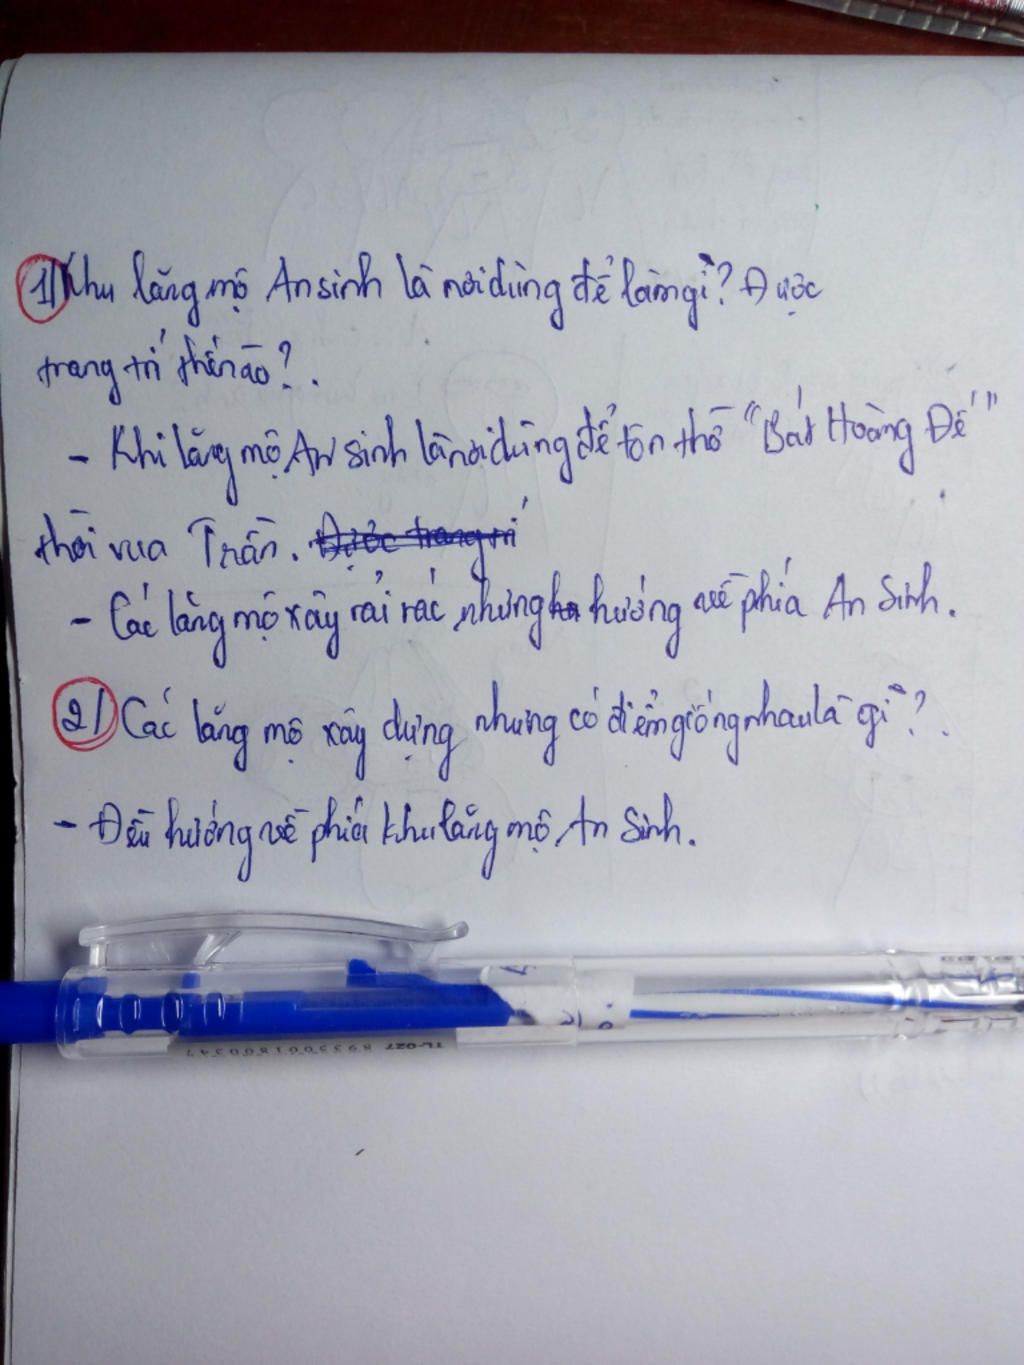 1) Khu lăng mộ An sinh là nơi dùng để làm gì? Được
trang trí thế nào?.
- Khi lăng mộ An sinh là nơi dùng để tôn thờ "Bát Hoàng Đế"
thời vua Trần. Được trang trí
- Các lăng mộ xây rải rác nhưng hướng về phía An Sinh.
2) Các lăng mộ xây dựng nhưng có điểm giống nhau là gì?.
- Đều hướng về phía khu lăng mộ An Sinh.
TL-027 8935001800347